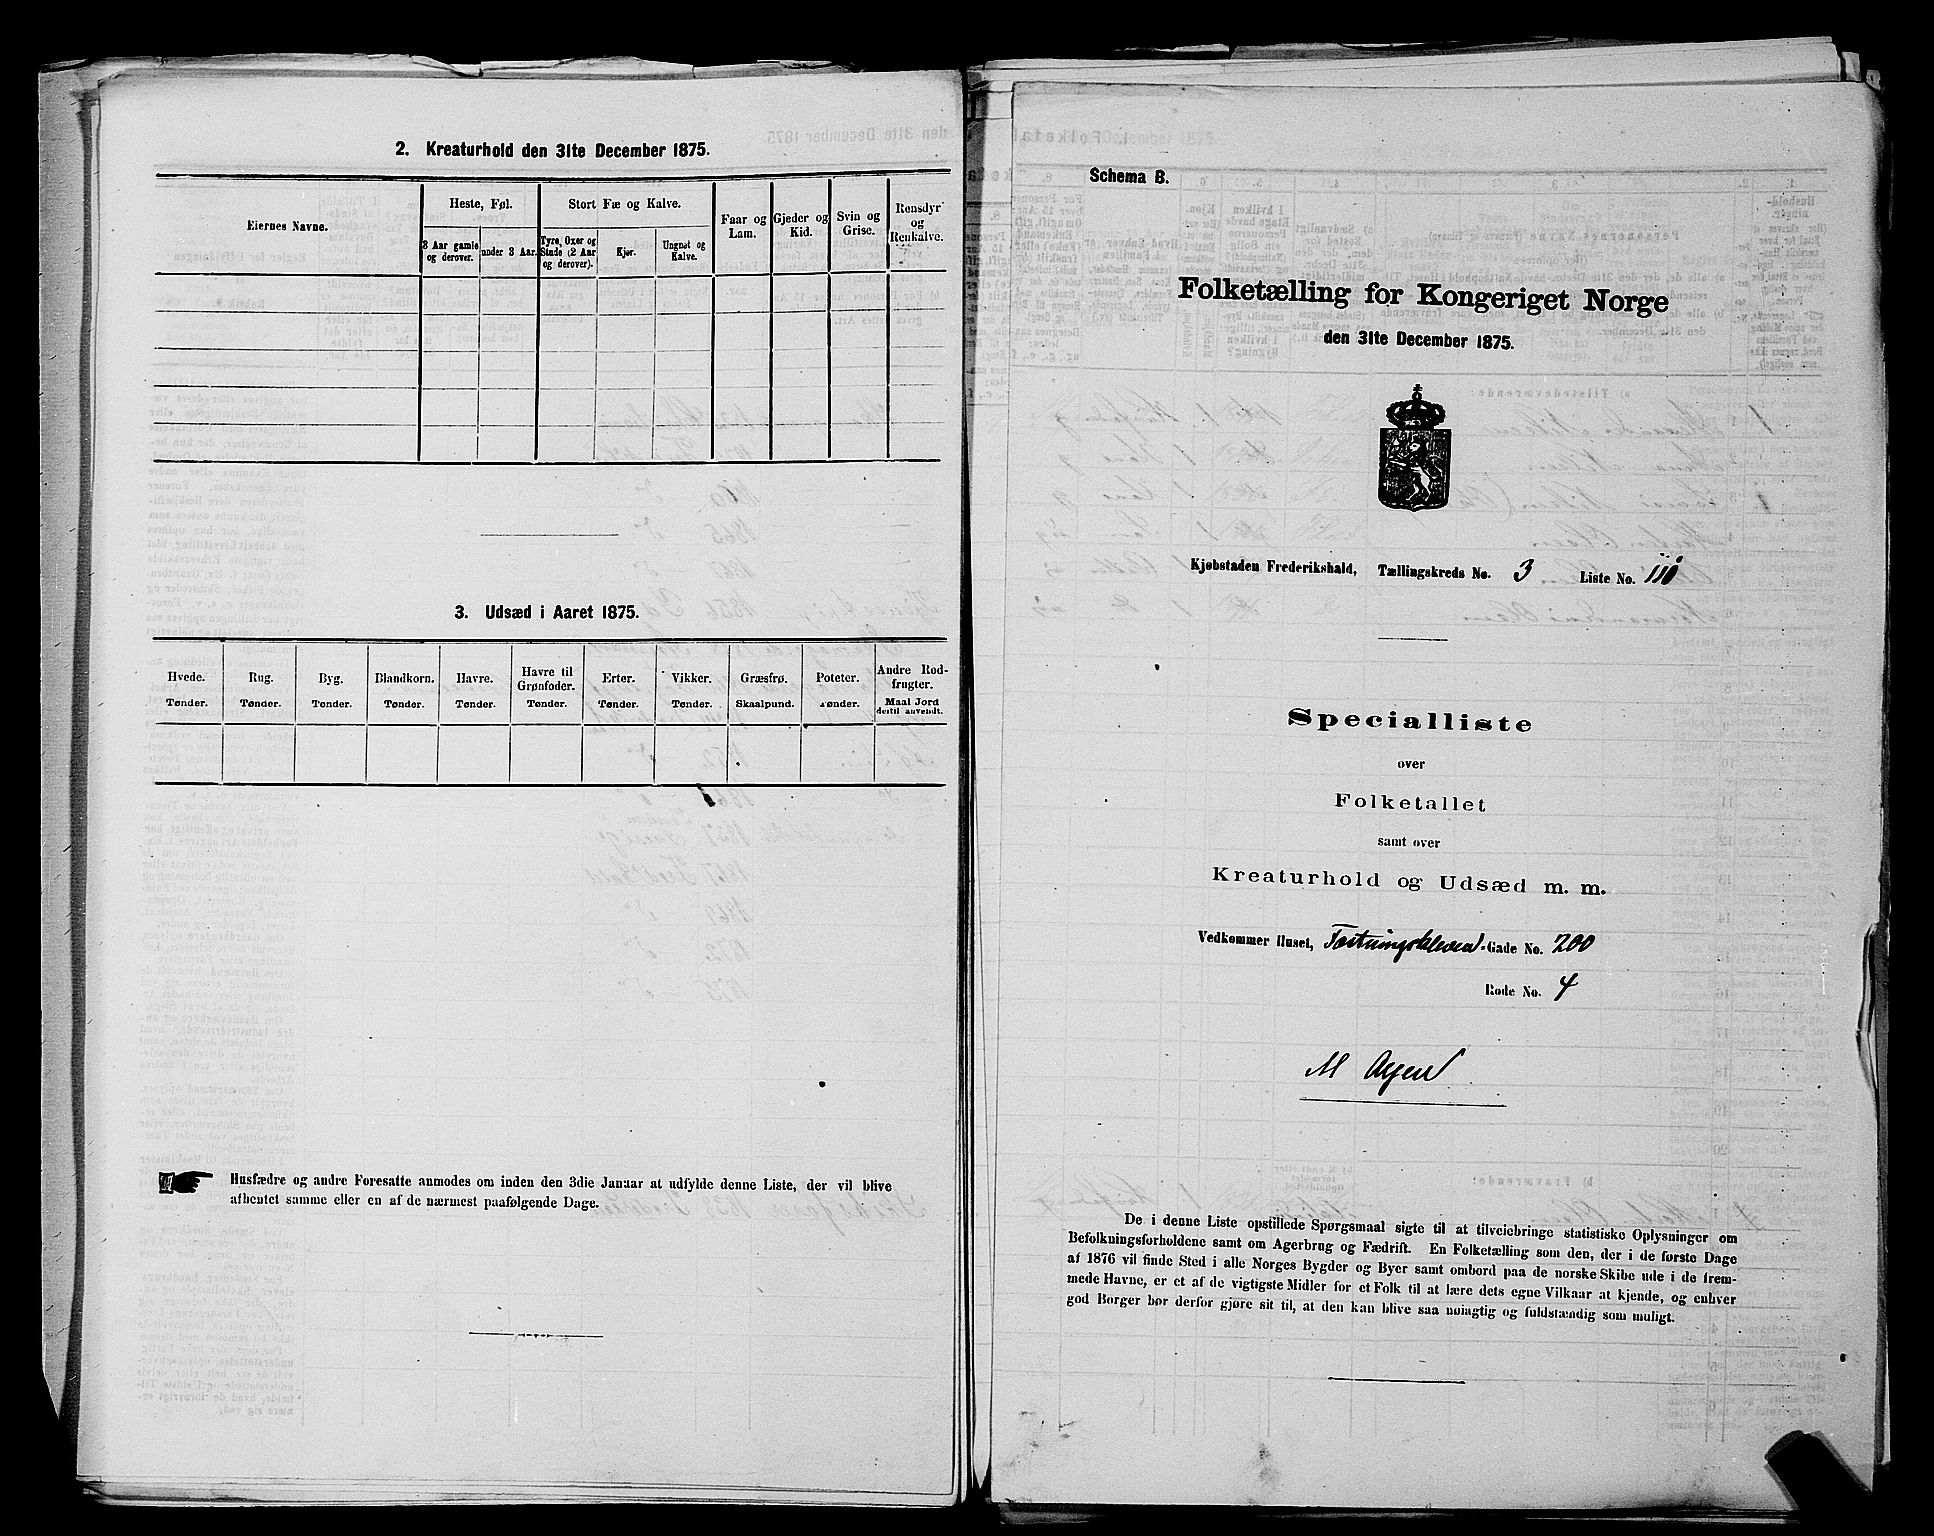 2. Kreaturhold den 31te December 1875.
Eiernes Navne.
Heste, Føl.
Stort Fæ og Kalve.
Faar og Lam.
Gjeder og Kid.
Svin og Grise.
Rensdyr og Renkalve.
3 Aar gamle og derover.
under 3 Aar.
Tyre, Oxer og Stude (2 Aar og derover).
Kjør.
Ungnøt og Kalve.
3. Udsæd i Aaret 1875.
Hvede. Tønder.
Rug. Tønder.
Byg. Tønder.
Blandkorn. Tønder.
Havre. Tønder.
Havre til Grønfoder. Tønder.
Erter. Tønder.
Vikker. Tønder.
Græsfrø. Skaalpund.
Poteter. Tønder.
Andre Rodfrugter. Maal Jord dertil anvendt.
Husfædre og andre Foresatte anmodes om inden den 3die Januar at udfylde denne Liste, der vil blive
afhentet samme eller en af de nærmest paafølgende Dage.
Schema B.
Folketælling for Kongeriget Norge
den 31te December 1875.
Kjøbstaden Frederikshald, Tællingskreds No. 3 Liste No. 110
Specialliste
over
Folketallet
samt over
Kreaturhold og Udsæd m. m.
Vedkommer Huset, Fæstningskleven-Gade No. 200
Rode No. 4
M
De i denne Liste opstillede Spørgsmaal sigte til at tilveiebringe statistiske Oplysninger om
Befolkningsforholdene samt om Agerbrug og Fædrift. En Folketælling som den, der i de første Dage
af 1876 vil finde Sted i alle Norges Bygder og Byer samt ombord paa de norske Skibe ude i de frem-
mede Havne, er et af de vigtigste Midler for et Folk til at lære dets egne Vilkaar at kjende, og enhver
god Borger bør derfor gjøre sit til, at den kan blive saa nøiagtig og fuldstændig som muligt.